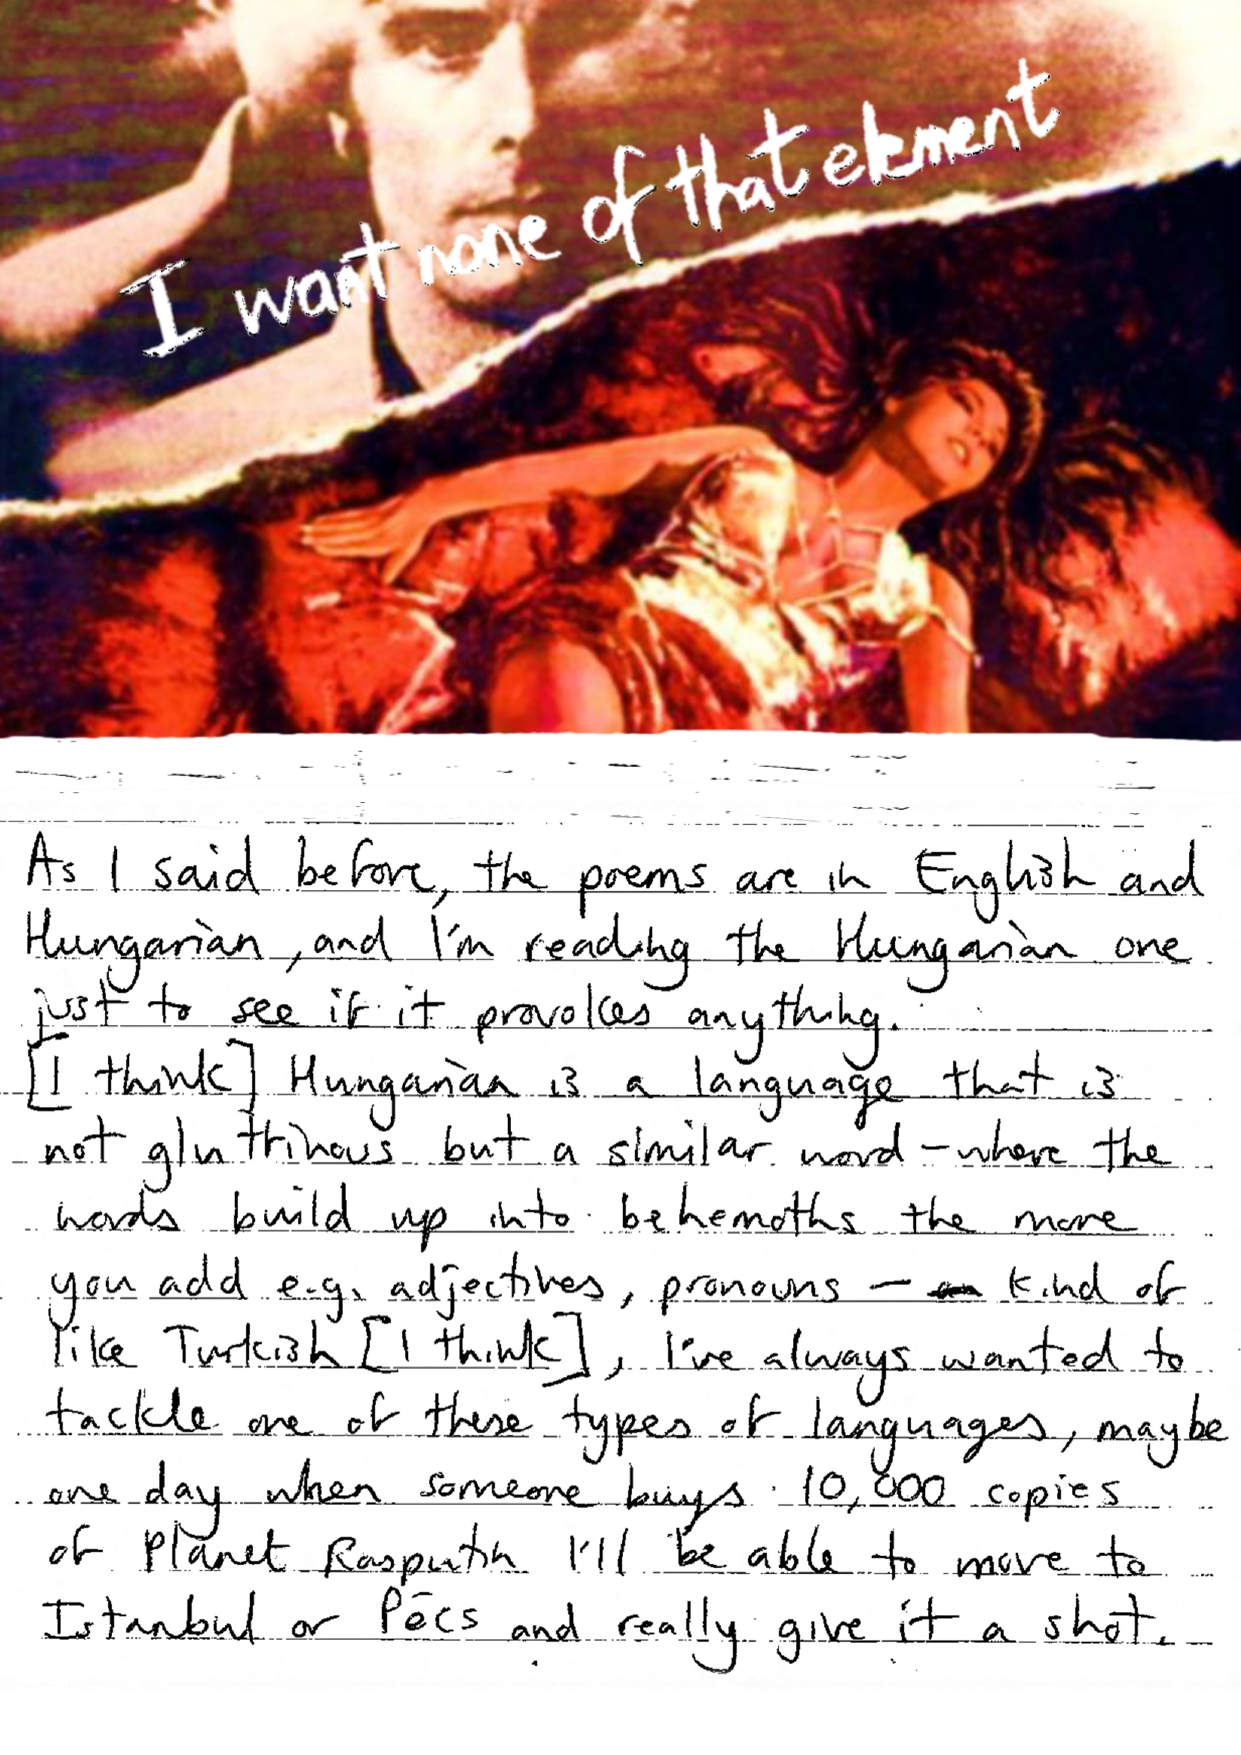 I want none of that element
As I said before, the poems are in English and
Hungarian, and I'm reading the Hungarian one
just to see if it provokes anything.
[I think] Hungarian is a language that is
not glutinous but a similar word - where the
words build up into behemoths the more
you add e.g. adjectives, pronouns - kind of
like Turkish [I think], I've always wanted to
tackle one of these types of languages, maybe
one day when someone buys 10,000 copies
of Planet Rasputin I'll be able to move to
Istanbul or Pécs and really give it a shot.